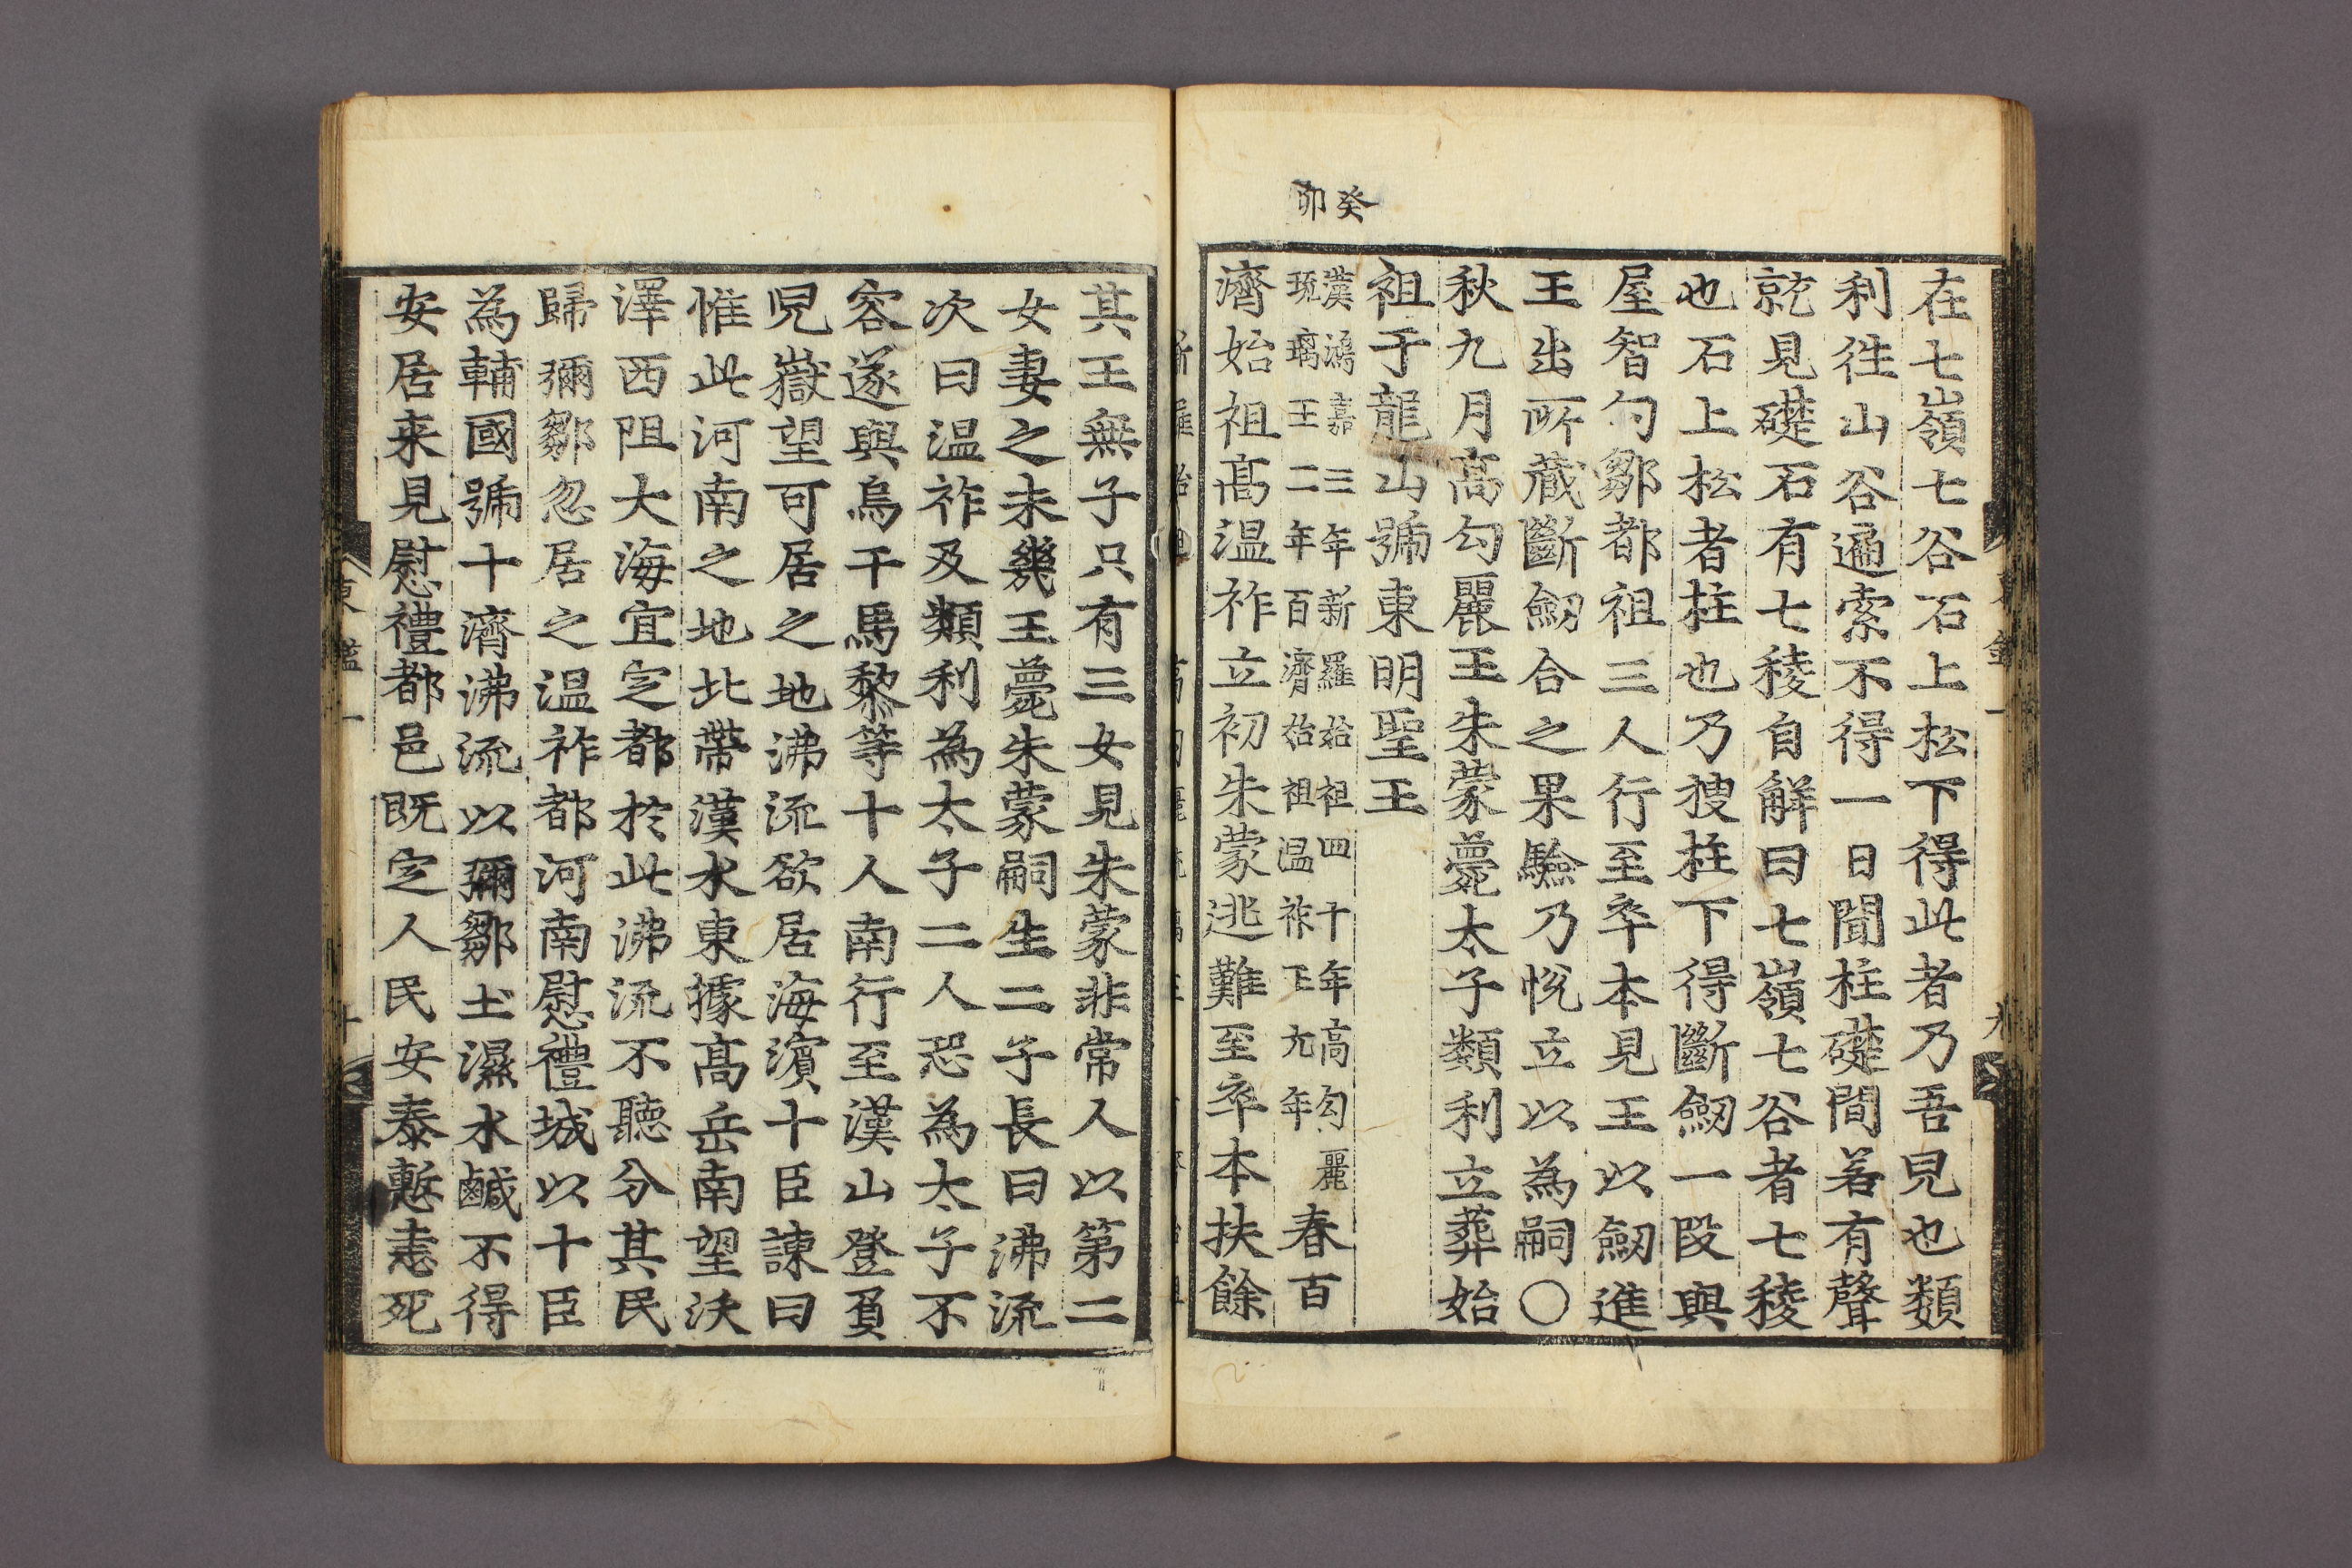 在七嶺七谷石上松下得此者乃吾兒也類
利徃山谷遍索不得一日聞柱礎間若有聲
就見礎石有七稜自解曰七嶺七谷者七稜
也石上松者柱也乃搜柱下得斷劒一段與
屋智勾鄒都祖三人行至卒本見王以劒進
王出所蔵斷劒合之果驗乃悅立以為嗣〇
秋九月高勾麗王朱蒙薨太子類利立葬始
祖于龍山號東明聖王
癸
卯
漢鴻嘉三年新羅始祖四十年高勾麗
琉璃王二年百濟始祖温祚王元年
春百
濟始祖高温祚立初朱蒙逃難至卒本扶餘
其王無子只有三女見朱蒙非常人以第二
女妻之未幾王薨朱蒙嗣生二子長曰沸流
次曰温祚及類利為太子二人恐為太子不
容遂與烏干馬黎等十人南行至漢山登負
兒嶽望可居之地沸流欲居海濱十臣諫曰
惟此河南之地北帶漢水東據高岳南望沃
澤西阻大海宜定都於此沸流不聽分其民
歸彌鄒忽居之温祚都河南慰禮城以十臣
為輔國號十濟沸流以彌鄒土濕水鹹不得
安居来見慰禮都邑既定人民安泰慙恚死
東鑑一